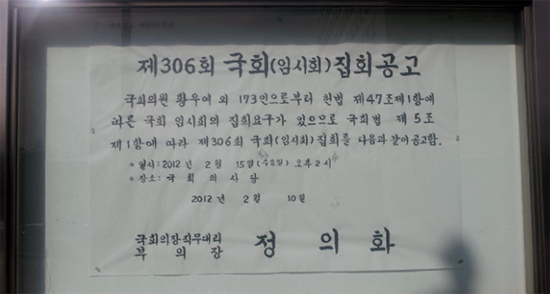 제306회 국회(임시회) 집회공고
국회의원 황우여 외 173인으로부터 헌법 제47조제1항에
따른 국회 임시회의 집회요구가 있으므로 국회법 제5조
제1항에 따라 제306회 국회(임시회) 집회를 다음과 같이 공고함.
◦ 일시: 2012년 2월 15일(수요일) 오후2시
◦ 장소: 국회의사당
2012년 2월 10일
국회의장직무대리
부의장 정의화